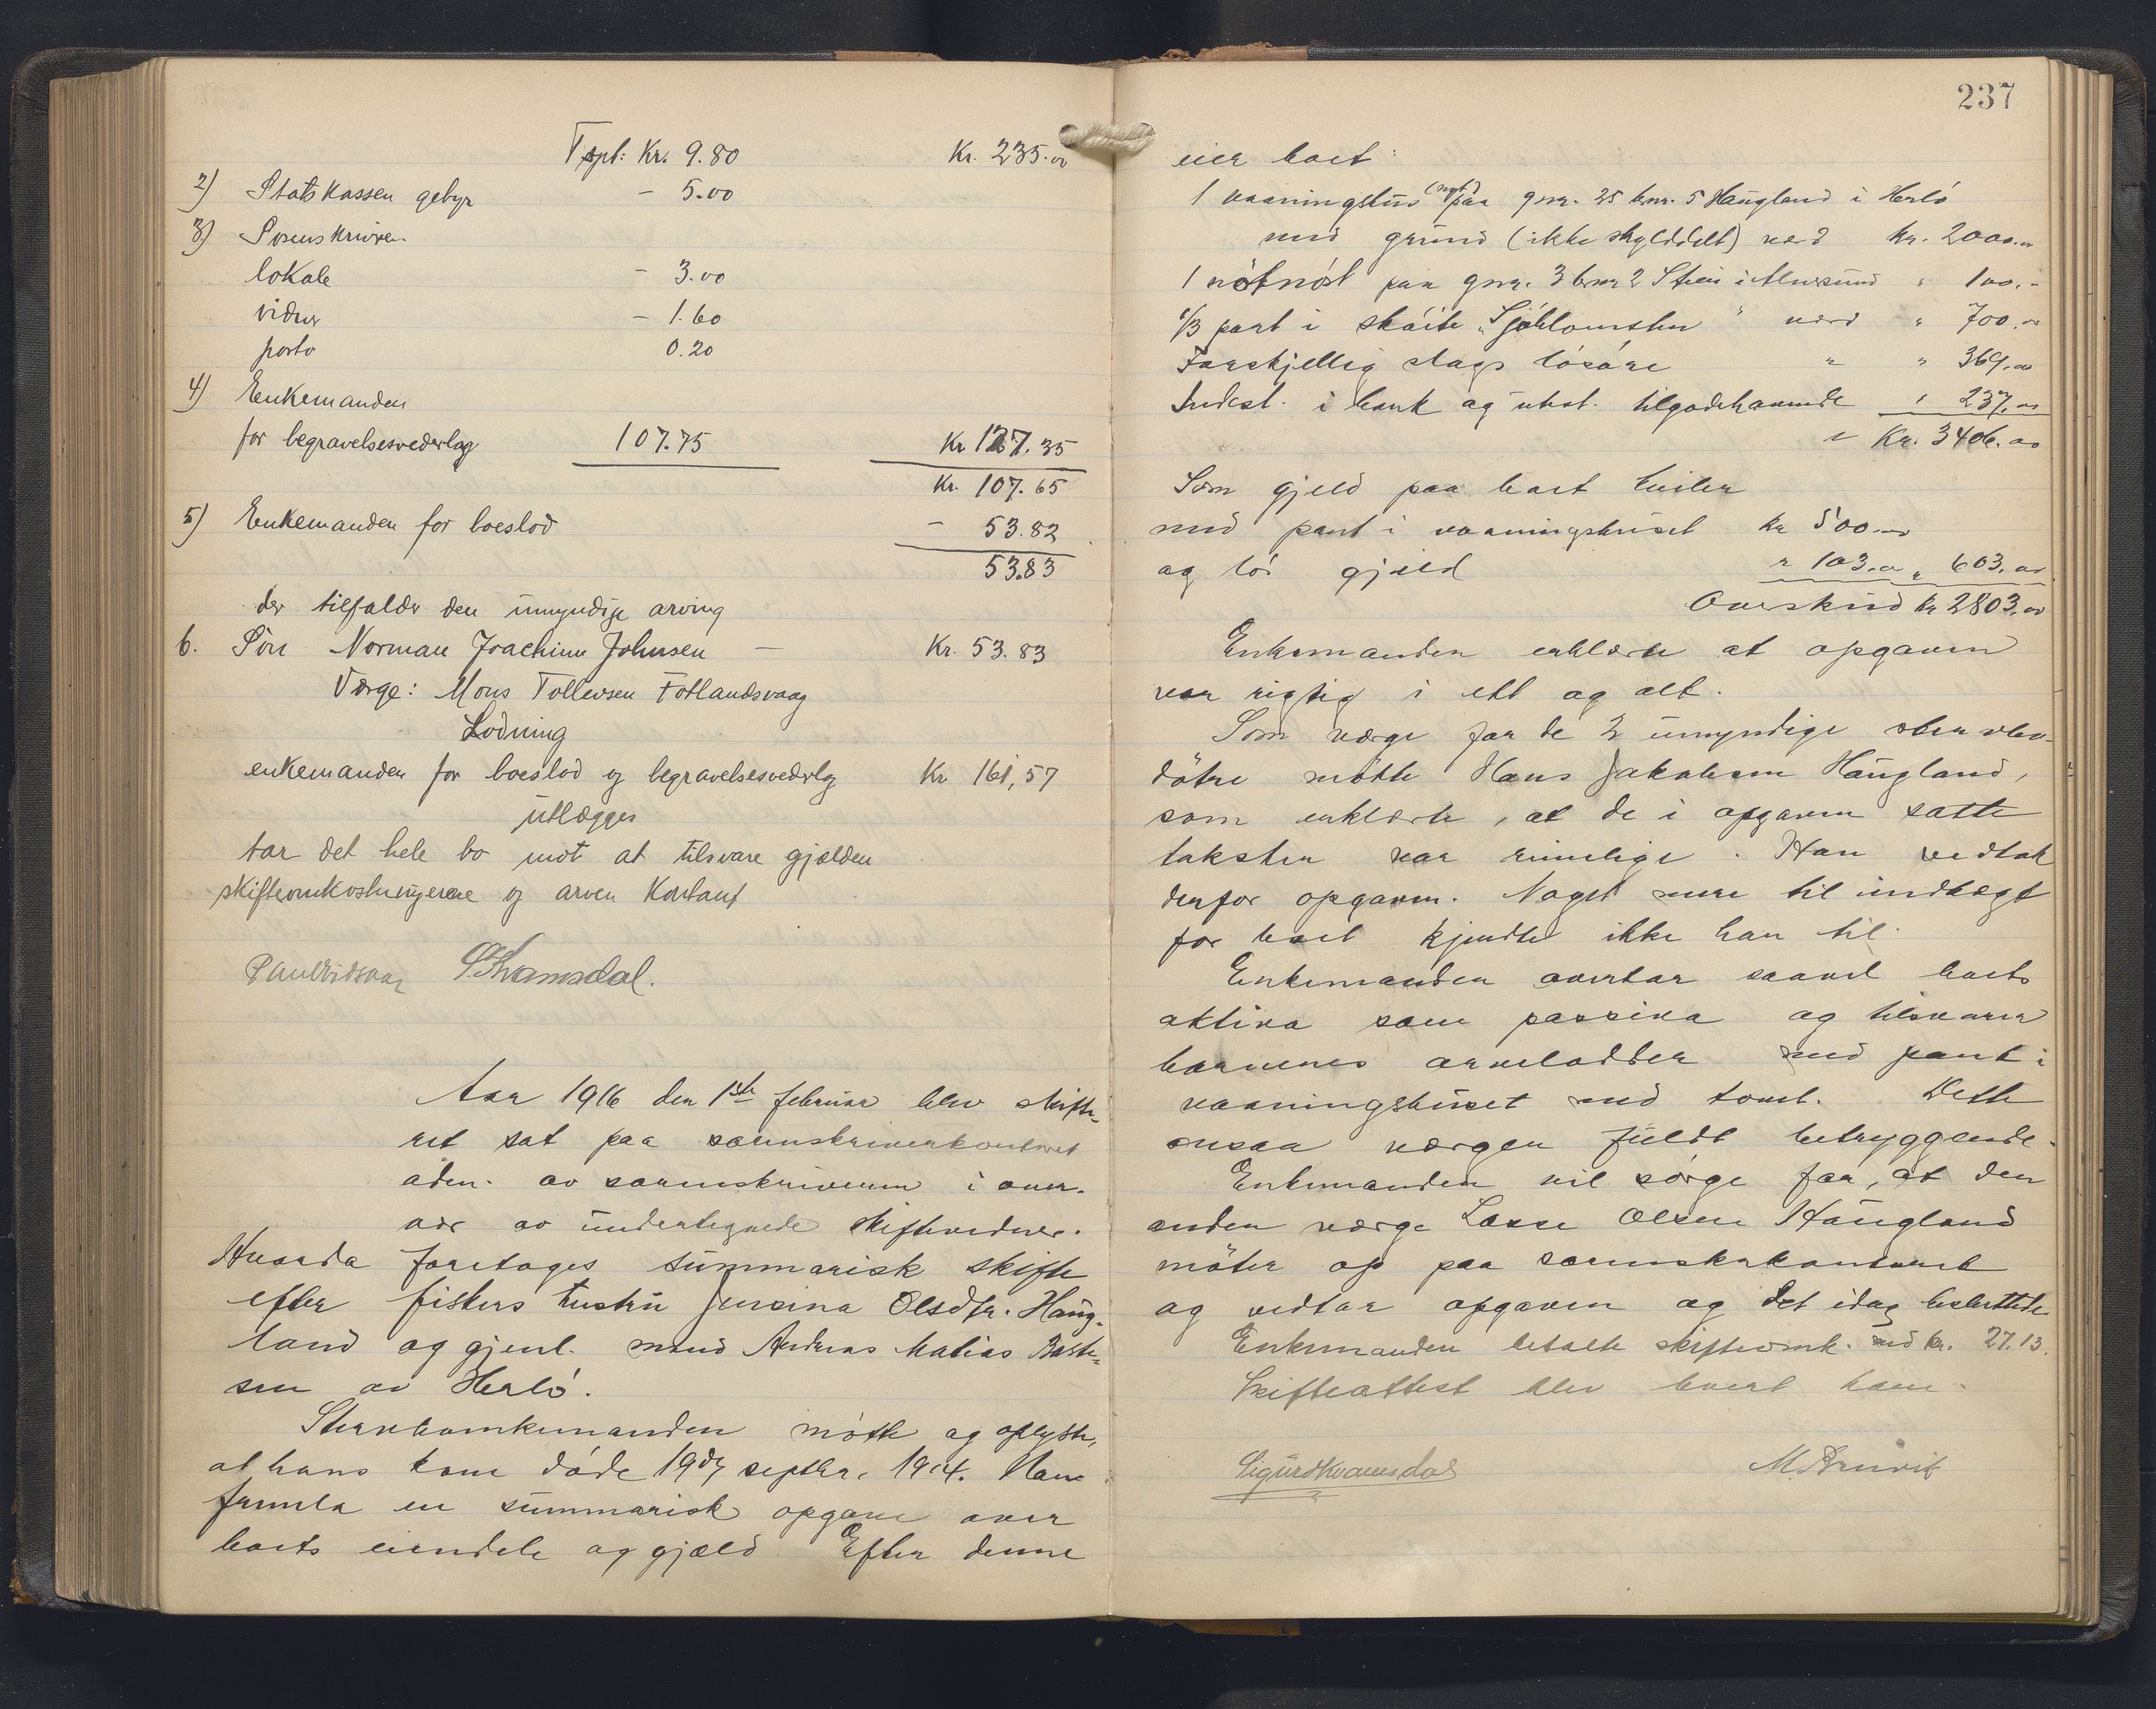 Trspt: Kr. 9.80 Kr. 235.00
2) Statskassen gebyr - 5.00
3) Sorenskriveren
lokale - 3.00
vidner - 1.60
porto 0.20
4) Enkemanden
for begravelsesvederlag 107.75 Kr 127.35
Kr. 107.65
5) Enkemanden for boeslod - 53.82
53.83
der tilfalder den umyndige arving
6. Søn Norman Joachim Johnsen - Kr. 53.83
Værge: Mons Tollevsen Fotlandsvaag
Lodning
enkemanden for boeslod og begravelsesvederlag Kr 161,57
utlægges
tar det hele bo mot at tilsvare gjælden
skifteomkostningerne og arven kontant
S. Kvamsdal.
Aar 1916 den 1ste februar blev skifte-
ret sat paa sorenskriverkontoret
adm. av sorenskriveren i over-
vær av undertegnede skiftevidner.
Hvorda foretoges summarisk skifte
efter fiskers hustru Jensina Olsdtr. Haug-
land og gjenl. mand Andreas Matias Baste-
sen av Herlö.
Stervboenkemanden mötte og oplyste,
at hans kone döde 19de septbr. 1914. Han
fremla en summarisk opgave over
boets eiendele og gjæld. Efter denne
237
eier boet:
1 vaaningshus (nyt) paa gnr. 25 bnr. 5 Haugland i Herlö
med grund (ikke skylddelt) værd kr. 2000.00
1 nötnöst paa gnr. 3 bnr 2 Stein i Alversund " 100.-
1/3 part i sköite "Sjöblomsten" værd " 700.00
Forskjellig slags lösöre " " 369.00
Indest. i bank og utest. tilgodehavende " 237.00
= Kr. 3406.00
Som gjeld paa boet hviler
med pant i vaaningshuset kr 500.00
og lös gjeld " 103.00 " 603.00
Overskud kr 2803.00
Enkemanden erklærte at opgaven
var rigtig i ett og alt.
Som værge for de 2 umyndige stervbo-
dötre mötte Hans Jakobsen Haugland,
som erklærte, at de i opgaven satte
takster var rimelige. Han vedtok
derfor opgaven. Noget mere til indtægt
for boet kjendte ikke han til.
Enkemanden overtar saavel boets
aktiva som passiva og tilsvarer
barnenes arvelodder med pant i
vaaningshuset med tomt. Dette
ansaa værgen fuldt betryggende.
Enkemanden vil sörge for, at den
anden værge Lasse Olsen Haugland
möter op paa sorenskrkontoret
og vedtar opgaven og det idag besluttede.
Enkemanden betalte skifteomk. med kr. 27.13.
Skifteattest blev levert ham.
Sigurd Kvamsdal M. Bruvik